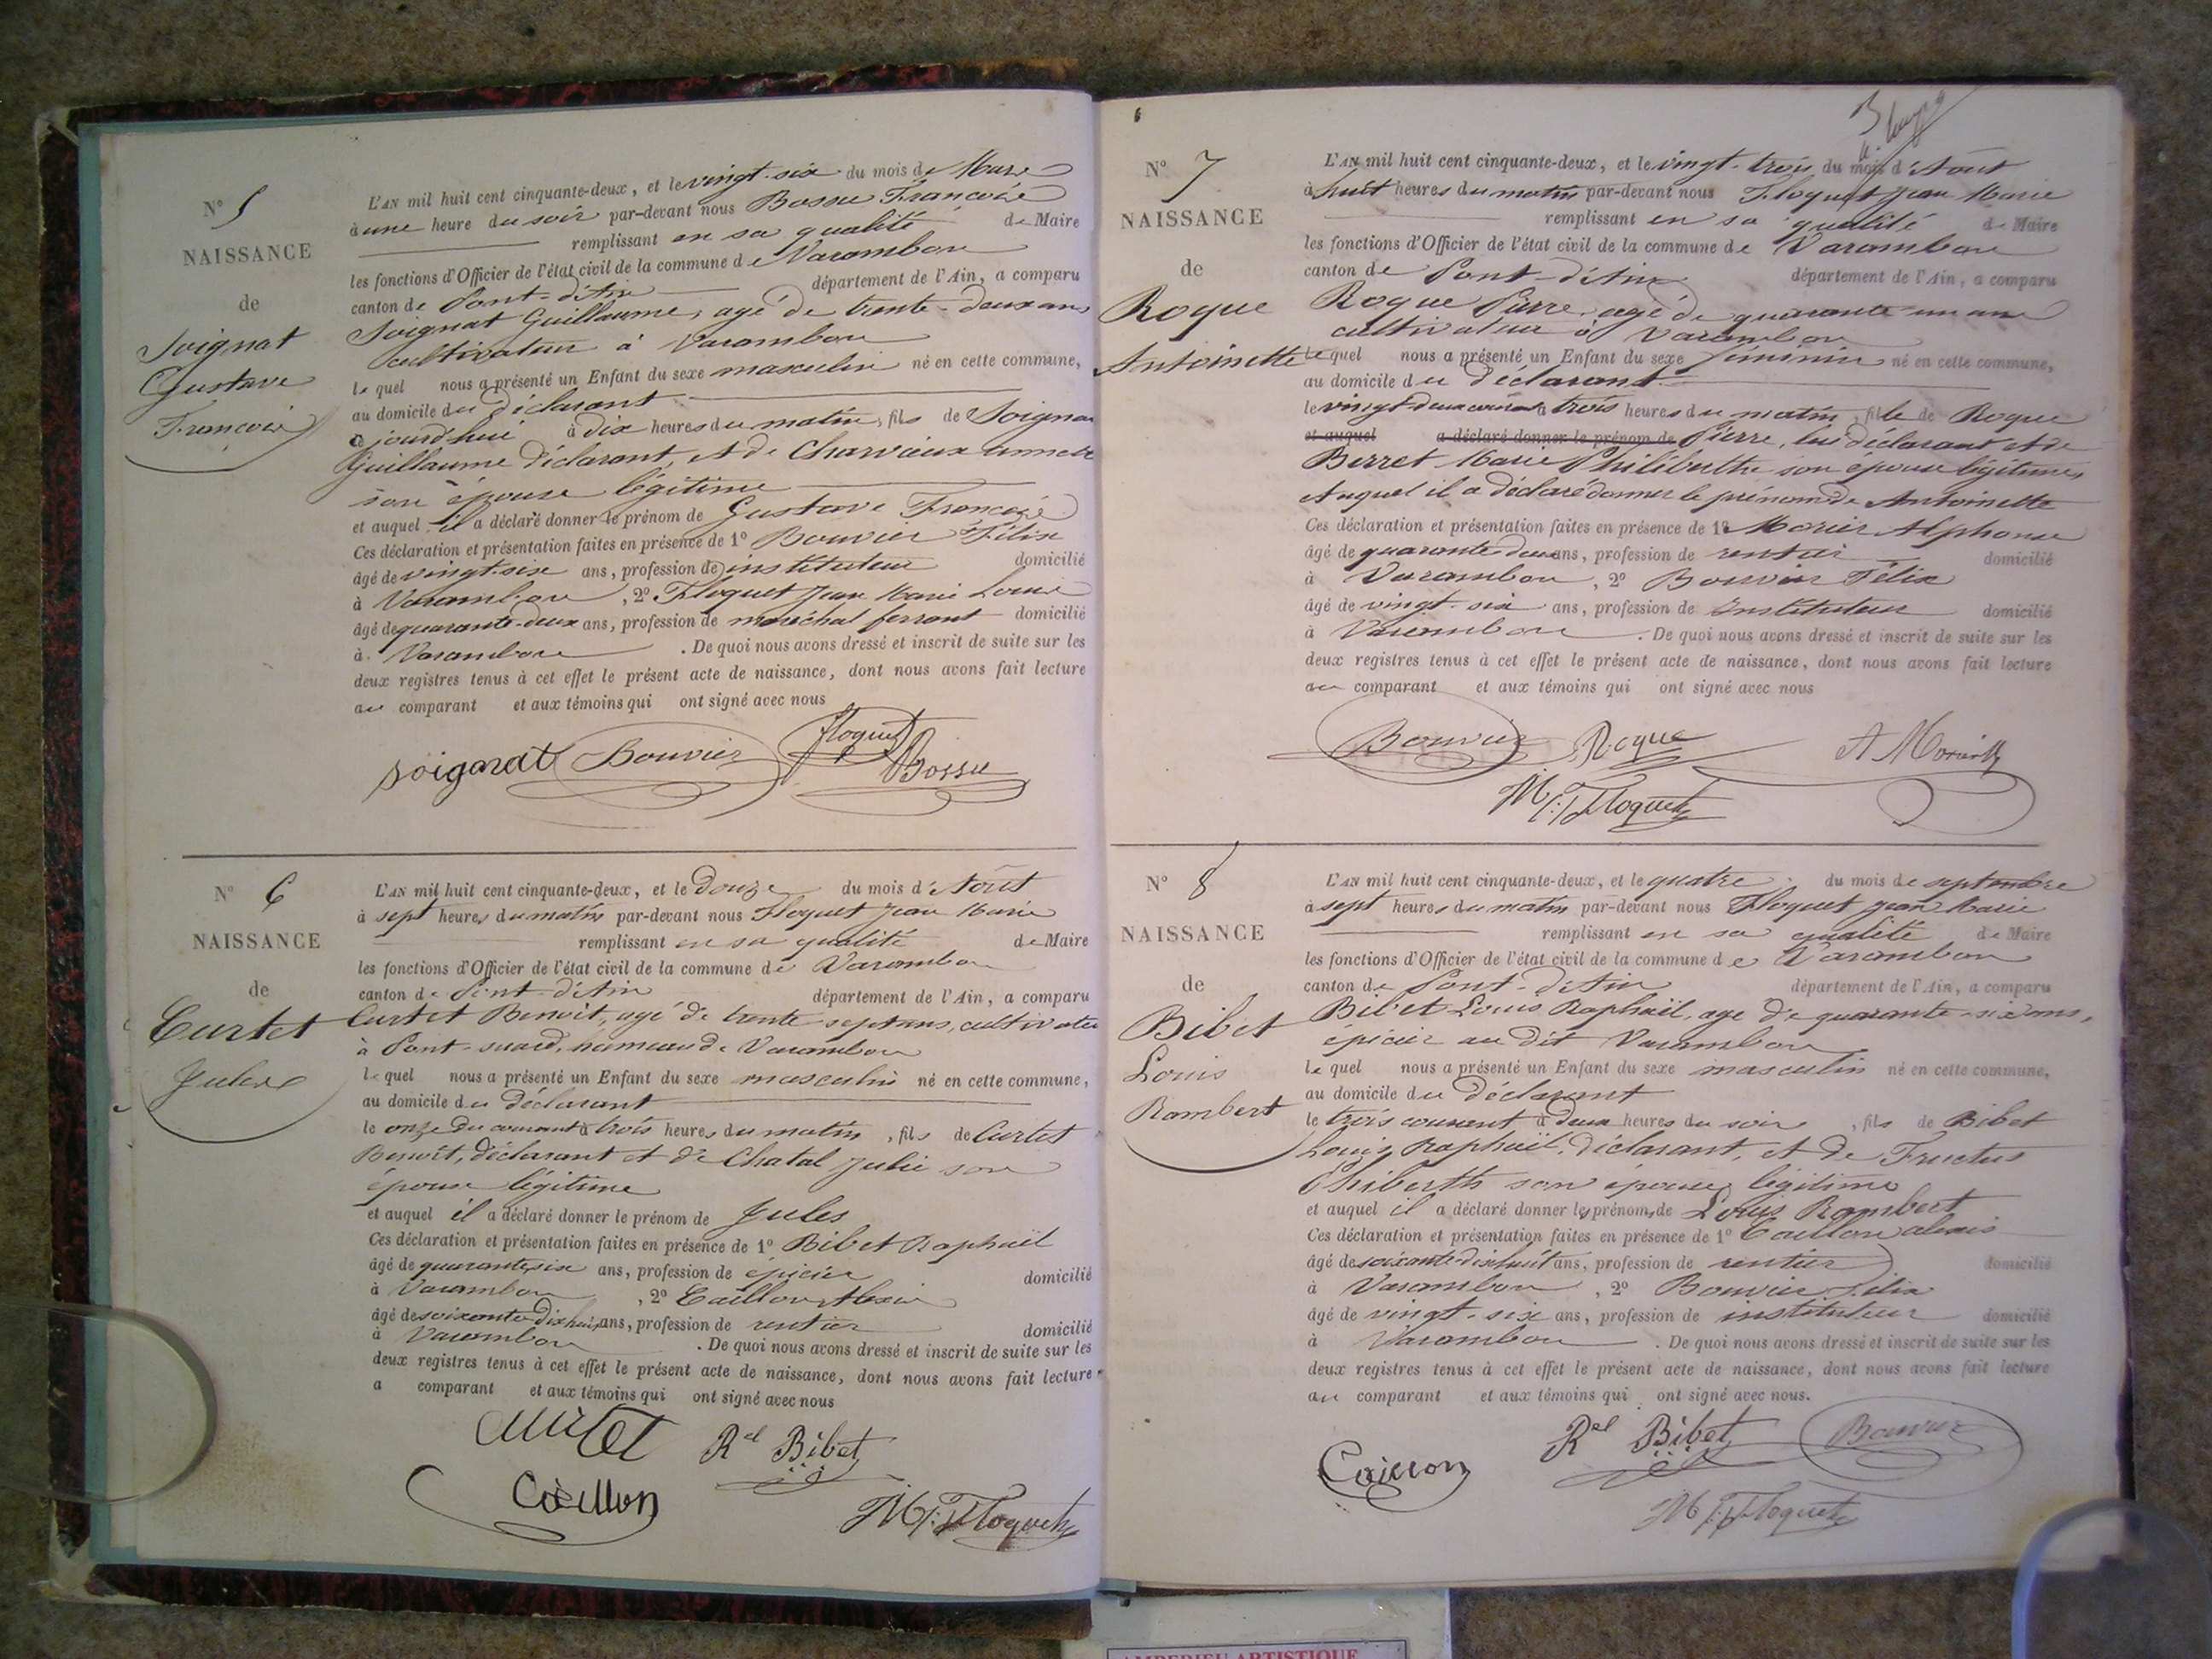 N° 5
NAISSANCE
de
Soignat
Gustave
François
L'AN mil huit cent cinquante-deux, et le vingt-six du mois de Mars
à une heure du soir par-devant nous Bossu François
remplissant en sa qualité de Maire
les fonctions d'Officier de l'état civil de la commune de Varambon
canton de Pont-d'Ain département de l'Ain, a comparu
Soignat Guillaume, agé de trente-deux ans
cultivateur à Varambon
lequel nous a présenté un Enfant du sexe masculin né en cette commune,
au domicile du déclarant
jourd'hui à dix heures du matin, fils de Soignat
Guillaume déclarant, et de Charvieux
son épouse légitime
et auquel il a déclaré donner le prénom de Gustave François
Ces déclaration et présentation faites en présence de 1° Bouvier Félix
âgé de vingt-six ans, profession de instituteur domicilié
à Varambon, 2° Floquet Jean Marie Louis
âgé de quarante-deux ans, profession de maréchal ferrant domicilié
à Varambon. De quoi nous avons dressé et inscrit de suite sur les
deux registres tenus à cet effet le présent acte de naissance, dont nous avons fait lecture
au comparant et aux témoins qui ont signé avec nous
soignat Bouvier Floquet
Bossu
N° 6
NAISSANCE
de
Curtet
Jules
L'AN mil huit cent cinquante-deux, et le douze du mois d'Août
à sept heures du matin par-devant nous Floquet Jean Marie
remplissant en sa qualité de Maire
les fonctions d'Officier de l'état civil de la commune de Varambon
canton de Pont-d'Ain département de l'Ain, a comparu
Curtet Benoit, agé de trente sept ans, cultivateu
à Pont-suard, hameau de Varambon
lequel nous a présenté un Enfant du sexe masculin né en cette commune,
au domicile du déclarant
le onze du courant à trois heures du matin, fils de Curtet
Benoît, déclarant et de Chatal Julie son
épouse légitime
et auquel il a déclaré donner le prénom de Jules
Ces déclaration et présentation faites en présence de 1° Bibet Raphaël
âgé de quarante six ans, profession de épicier domicilié
à Varambon, 2° Caillon Alexis
âgé de soixante-dix huit ans, profession de rentier domicilié
à Varambon. De quoi nous avons dressé et inscrit de suite sur les
deux registres tenus à cet effet le présent acte de naissance, dont nous avons fait lecture
a comparant et aux témoins qui ont signé avec nous
Curtet Rel Bibet
Caillon
Floquet
N° 7
NAISSANCE
de
Roque
Antoinette
L'AN mil huit cent cinquante-deux, et le vingt-trois du mois d'Août
à huit heures du matin par-devant nous Floquet Jean Marie
remplissant en sa qualité de Maire
les fonctions d'Officier de l'état civil de la commune de Varambon
canton de Pont-d'Ain département de l'Ain, a comparu
Roque Pierre, agé de quarante un ans
cultivateur à Varambon
lequel nous a présenté un Enfant du sexe féminin né en cette commune,
au domicile du déclarant
le vingt-deux courant à trois heures du matin, fille de Roque
et auquel a déclaré donner le prénom de Pierre, lui déclarant et de
Berret Marie Philiberthe son épouse légitime,
Auquel il a déclaré donner le prénom de Antoinette
Ces déclaration et présentation faites en présence de 1° Alphonse
âgé de quarante deux ans, profession de rentier domicilié
à Varambon, 2° Bouvier Félix
âgé de vingt-six ans, profession de Instituteur domicilié
à Varambon. De quoi nous avons dressé et inscrit de suite sur les
deux registres tenus à cet effet le présent acte de naissance, dont nous avons fait lecture
au comparant et aux témoins qui ont signé avec nous
Bouvier Roque
Floquet
N° 8
NAISSANCE
de
Bibet
Louis
Rambert
L'AN mil huit cent cinquante-deux, et le quatre du mois de septembre
à sept heures du matin par-devant nous Floquet Jean Marie
remplissant en sa qualité de Maire
les fonctions d'Officier de l'état civil de la commune de Varambon
canton de Pont-d'Ain département de l'Ain, a comparu
Bibet Louis Raphaël, agé de quarante-six ans,
épicier au dit Varambon
lequel nous a présenté un Enfant du sexe masculin né en cette commune,
au domicile du déclarant
le trois courant à deux heures du soir, fils de Bibet
Louis Raphaël, déclarant, et de Fructus
Philiberth son épouse légitime
et auquel il a déclaré donner les prénoms de Louis Rambert
Ces déclaration et présentation faites en présence de 1° Caillon alexis
âgé de soixante-dix huit ans, profession de rentier domicilié
à Varambon, 2° Bouvier Félix
âgé de vingt-six ans, profession de instituteur domicilié
à Varambon. De quoi nous avons dressé et inscrit de suite sur les
deux registres tenus à cet effet le présent acte de naissance, dont nous avons fait lecture
au comparant et aux témoins qui ont signé avec nous.
Rel Bibet Bouvier
Caillon
Floquet
AMBERIEU ARTISTIQUE